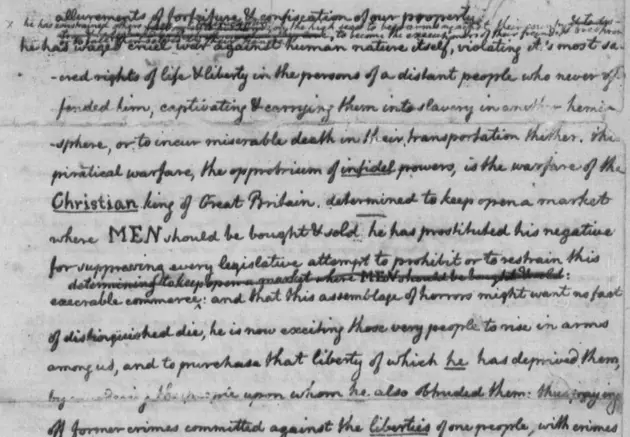 allurements of forfeiture & confiscation of our property
he has constrained others
he has waged cruel war against human nature itself, violating it's most sa-
-cred rights of life & liberty in the persons of a distant people who never of-
fended him, captivating & carrying them into slavery in another hemi-
-sphere, or to incur miserable death in their transportation thither. this
piratical warfare, the opprobrium of infidel powers, is the warfare of the
Christian king of Great Britain. determined to keep open a market
where MEN should be bought & sold he has prostituted his negative
for suppressing every legislative attempt to prohibit or to restrain this
determining to keep open a market where MEN should be bought & sold:
execrable commerce: and that this assemblage of horrors might want no fact
of distinguished die, he is now exciting those very people to rise in arms
among us, and to purchase that liberty of which he has deprived them,
by upon whom he also obtruded them: thus paying
off former crimes committed against the liberties of one people, with crimes